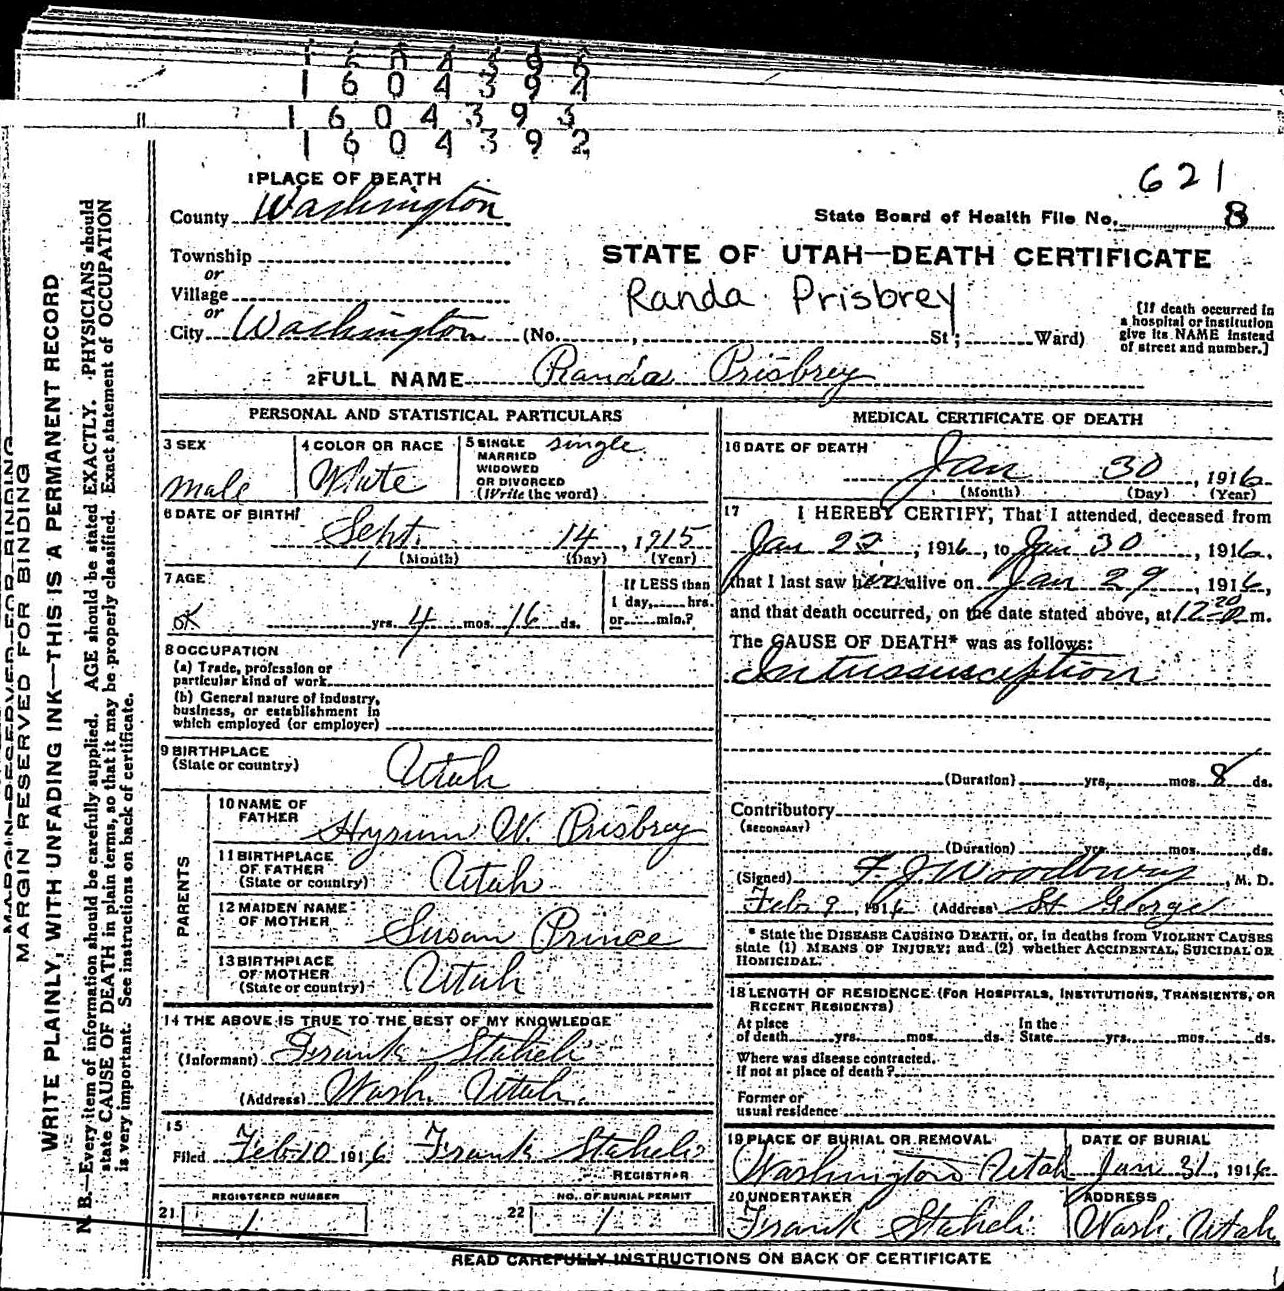 1604392
1604394
1604393
1604392
621
1 PLACE OF DEATH
County Washington
State Board of Health File No. 8
Township
or
Village
or
City Washington (No. , St; Ward)
STATE OF UTAH—DEATH CERTIFICATE
Randa Prisbrey
[If death occurred in
a hospital or institution
give its NAME instead
of street and number.]
2 FULL NAME Randa Prisbrey
PERSONAL AND STATISTICAL PARTICULARS
3 SEX
male
4 COLOR OR RACE
White
5 SINGLE single
MARRIED
WIDOWED
OR DIVORCED
(Write the word)
6 DATE OF BIRTH
Sept. 14, 1915
(Month) (Day) (Year)
7 AGE
OK yrs. 4 mos. 16 ds.
If LESS than
1 day, hrs.
or min.?
8 OCCUPATION
(a) Trade, profession or
particular kind of work
(b) General nature of industry,
business, or establishment in
which employed (or employer)
9 BIRTHPLACE
(State or country) Utah
PARENTS
10 NAME OF
FATHER Hyrum W. Prisbrey
11 BIRTHPLACE
OF FATHER
(State or country) Utah
12 MAIDEN NAME
OF MOTHER Susan Prince
13 BIRTHPLACE
OF MOTHER
(State or country) Utah
14 THE ABOVE IS TRUE TO THE BEST OF MY KNOWLEDGE
(Informant) Frank Staheli
(Address) Wash. Utah.
15
Filed Feb 10 1916 Frank Staheli
REGISTRAR
REGISTERED NUMBER
21 1
NO. OF BURIAL PERMIT
22 1
MEDICAL CERTIFICATE OF DEATH
16 DATE OF DEATH
Jan 30, 1916
(Month) (Day) (Year)
17 I HEREBY CERTIFY, That I attended, deceased from
Jan 22, 1916, to Jan 30, 1916.
that I last saw him alive on Jan 29, 1916,
and that death occurred, on the date stated above, at 12 20 m.
The CAUSE OF DEATH* was as follows:
Intussusception
(Duration) yrs. mos. 8 ds.
Contributory
(SECONDARY)
(Duration) yrs. mos. ds.
(Signed) F. J. Woodbury, M. D.
Feb. 9, 1916 (Address) St George
* State the DISEASE CAUSING DEATH, or, in deaths from VIOLENT CAUSES
state (1) MEANS OF INJURY; and (2) whether ACCIDENTAL, SUICIDAL OR
HOMICIDAL.
18 LENGTH OF RESIDENCE (FOR HOSPITALS, INSTITUTIONS, TRANSIENTS, OR
RECENT RESIDENTS)
At place
of death yrs. mos. ds. In the
State yrs. mos. ds.
Where was disease contracted,
if not at place of death?
Former or
usual residence
19 PLACE OF BURIAL OR REMOVAL
Washington Utah
DATE OF BURIAL
Jan 31, 1916
20 UNDERTAKER
Frank Staheli
ADDRESS
Wash. Utah
READ CAREFULLY INSTRUCTIONS ON BACK OF CERTIFICATE
MARGIN RESERVED FOR BINDING
MARGIN RESERVED FOR BINDING
WRITE PLAINLY, WITH UNFADING INK—THIS IS A PERMANENT RECORD
N. B.—Every item of information should be carefully supplied. AGE should be stated EXACTLY. PHYSICIANS should
state CAUSE OF DEATH in plain terms, so that it may be properly classified. Exact statement of OCCUPATION
is very important. See instructions on back of certificate.